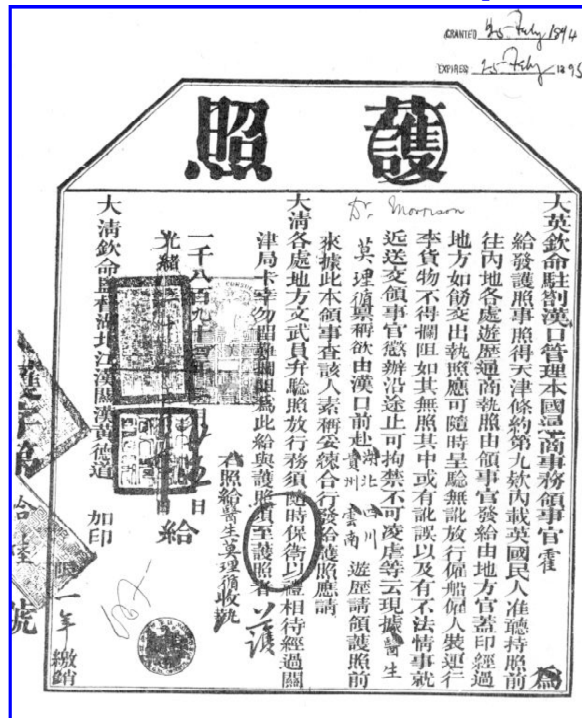 GRANTED 25 Feby 1894
EXPIRES 25 Feby 1895
護照
大英欽命駐劄漢口管理本國通商事務領事官霍 為
給發護照事照得天津條約第九款內載英國民人准聽持照前
往內地各處遊歷通商執照由領事官發給由地方官蓋印經過
地方如飭交出執照應可隨時呈驗無訛放行僱船僱人裝運行
李貨物不得攔阻如其無照其中或有訛誤以及有不法情事就
近送交領事官懲辦沿途止可拘禁不可凌虐等云現據醫生
Dr. Morrison
莫理循稟稱欲由漢口前赴湖北四川貴州雲南遊歷請領護照前
來據此本領事查該人素稱妥練合行發給護照應請
大清各處地方文武員弁驗照放行務須隨時保衛以禮相待經過關
津局卡幸勿留難攔阻為此給與護照須至護照者
護
右照給醫生莫理循收執
一千八百九十四年 日
光緒 日 給
大清欽命監督湖北江漢關漢黃德道 加印
限一年繳銷
號